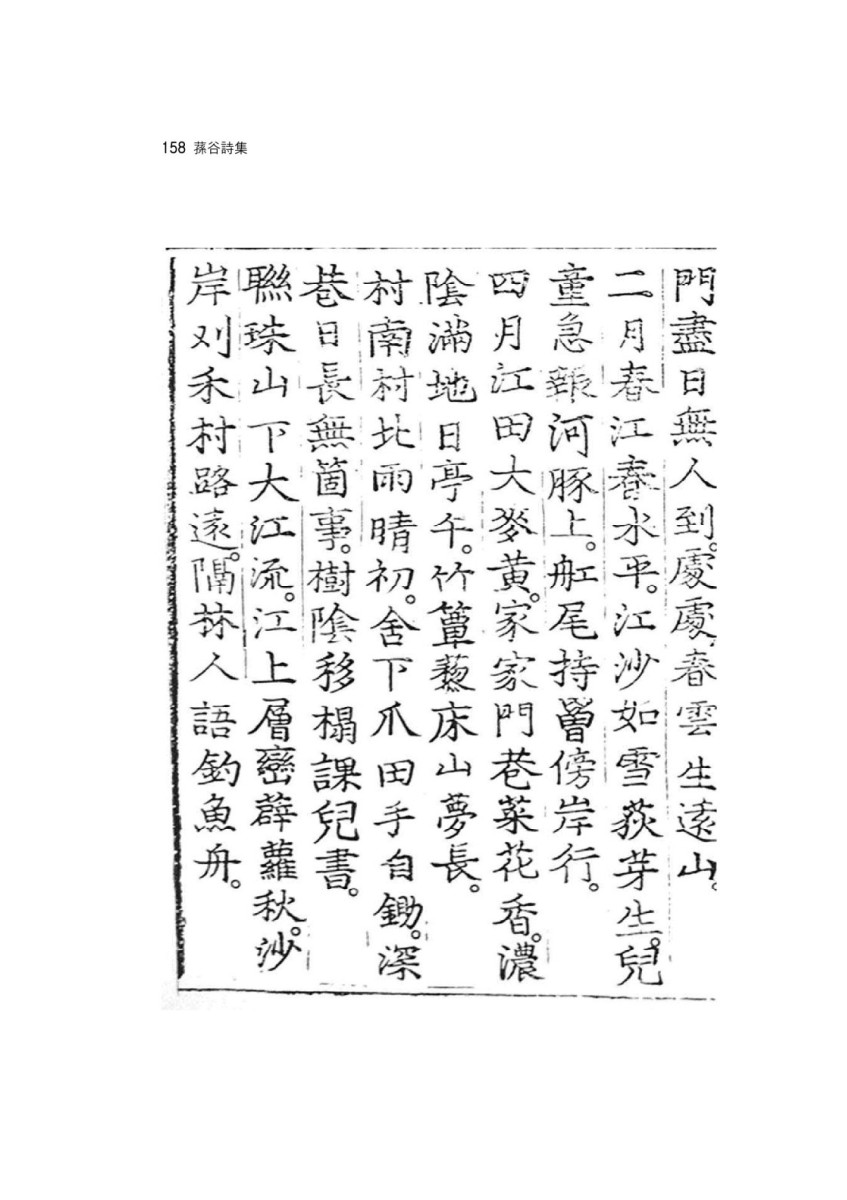 158 蓀谷詩集
門盡日無人到。處處春雲生遠山。
二月春江春水平。江沙如雪荻芽生。兒
童急報河豚上。舡尾持罾傍岸行。
四月江田大麥黃。家家門巷菜花香。濃
陰滿地日亭午。竹簟藜床山夢長。
村南村北雨晴初。舍下瓜田手自鋤。深
巷日長無箇事。樹陰移榻課兒書。
聯珠山下大江流。江上層巒薜蘿秋。沙
岸刈禾村路遠。隔林人語釣魚舟。